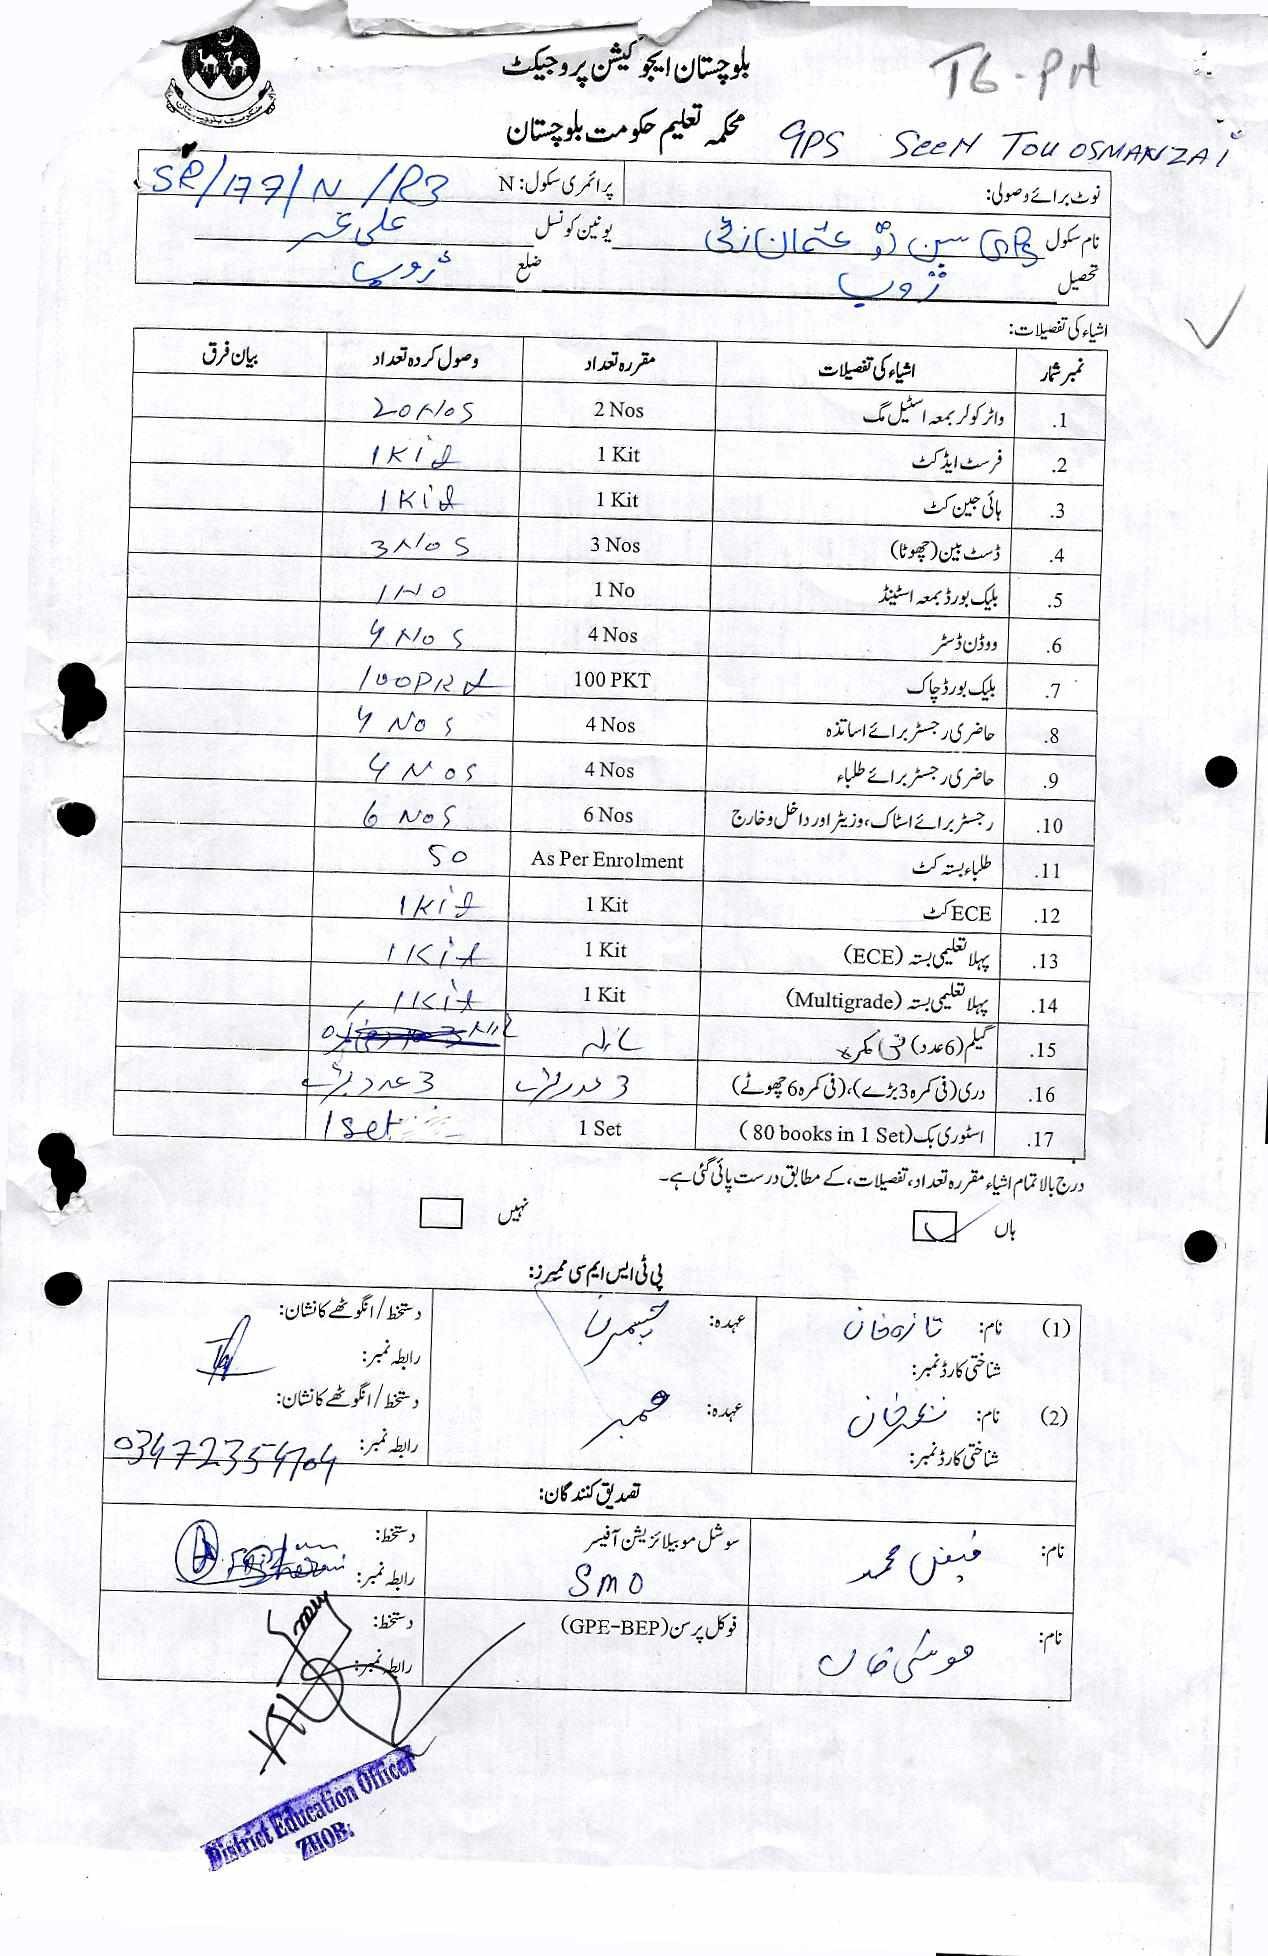 بلوچستان ایجوکیشن پروجیکٹ
T6-PH
محکمہ تعلیم حکومت بلوچستان
GPS SEEN TOU OSMANZAI
نوٹ برائے وصولی: پرائمری سکول: N SR/177/N/R3
نام سکول GPS سین تو عثمان زئی یونین کونسل علی
تحصیل ژوب ضلع ژوب
اشیاء کی تفصیلات:
نمبر شمار اشیاء کی تفصیلات مقررہ تعداد وصول کردہ تعداد بیان فرق
1. واٹر کولر بمعہ اسٹیل مگ 2 Nos 20 Nos
2. فرسٹ ایڈ کٹ 1 Kit 1 Kit
3. ہائی جین کٹ 1 Kit 1 Kit
4. ڈسٹ بین (چھوٹا) 3 Nos 3 Nos
5. بلیک بورڈ بمعہ اسٹینڈ 1 No 1 No
6. ووڈن ڈسٹر 4 Nos 4 Nos
7. بلیک بورڈ چاک 100 PKT 100 PKt
8. حاضری رجسٹر برائے اساتذہ 4 Nos 4 Nos
9. حاضری رجسٹر برائے طلباء 4 Nos 4 Nos
10. رجسٹر برائے اسٹاک، وزیٹر اور داخل و خارج 6 Nos 6 Nos
11. طلباء بستہ کٹ As Per Enrolment 50
12. ECE کٹ 1 Kit 1 Kit
13. پہلا تعلیمی بستہ (ECE) 1 Kit 1 Kit
14. پہلا تعلیمی بستہ (Multigrade) 1 Kit 1 Kit
15. گیلم (6 عدد) فی کمرہ Nil
16. دری (فی کمرہ 3 بڑے)، (فی کمرہ 6 چھوٹے) 3 عدد بڑے 3 عدد بڑے
17. اسٹوری بک (80 books in 1 Set) 1 Set 1 set
درج بالا تمام اشیاء مقررہ تعداد، تفصیلات، کے مطابق درست پائی گئی ہے۔
ہاں نہیں
پی ٹی ایس ایم سی ممبرز:
(1) نام: تازہ خان عہدہ: چیئرمین دستخط / انگوٹھے کا نشان:
شناختی کارڈ نمبر: رابطہ نمبر:
(2) نام: عہدہ: ممبر دستخط / انگوٹھے کا نشان:
شناختی کارڈ نمبر: رابطہ نمبر: 03472354704
تصدیق کنندگان:
نام: فیض محمد سوشل موبیلائزیشن آفیسر دستخط:
SMO رابطہ نمبر:
نام: موسی خان فوکل پرسن (GPE-BEP) دستخط:
رابطہ نمبر:
District Education Officer
ZHOB: